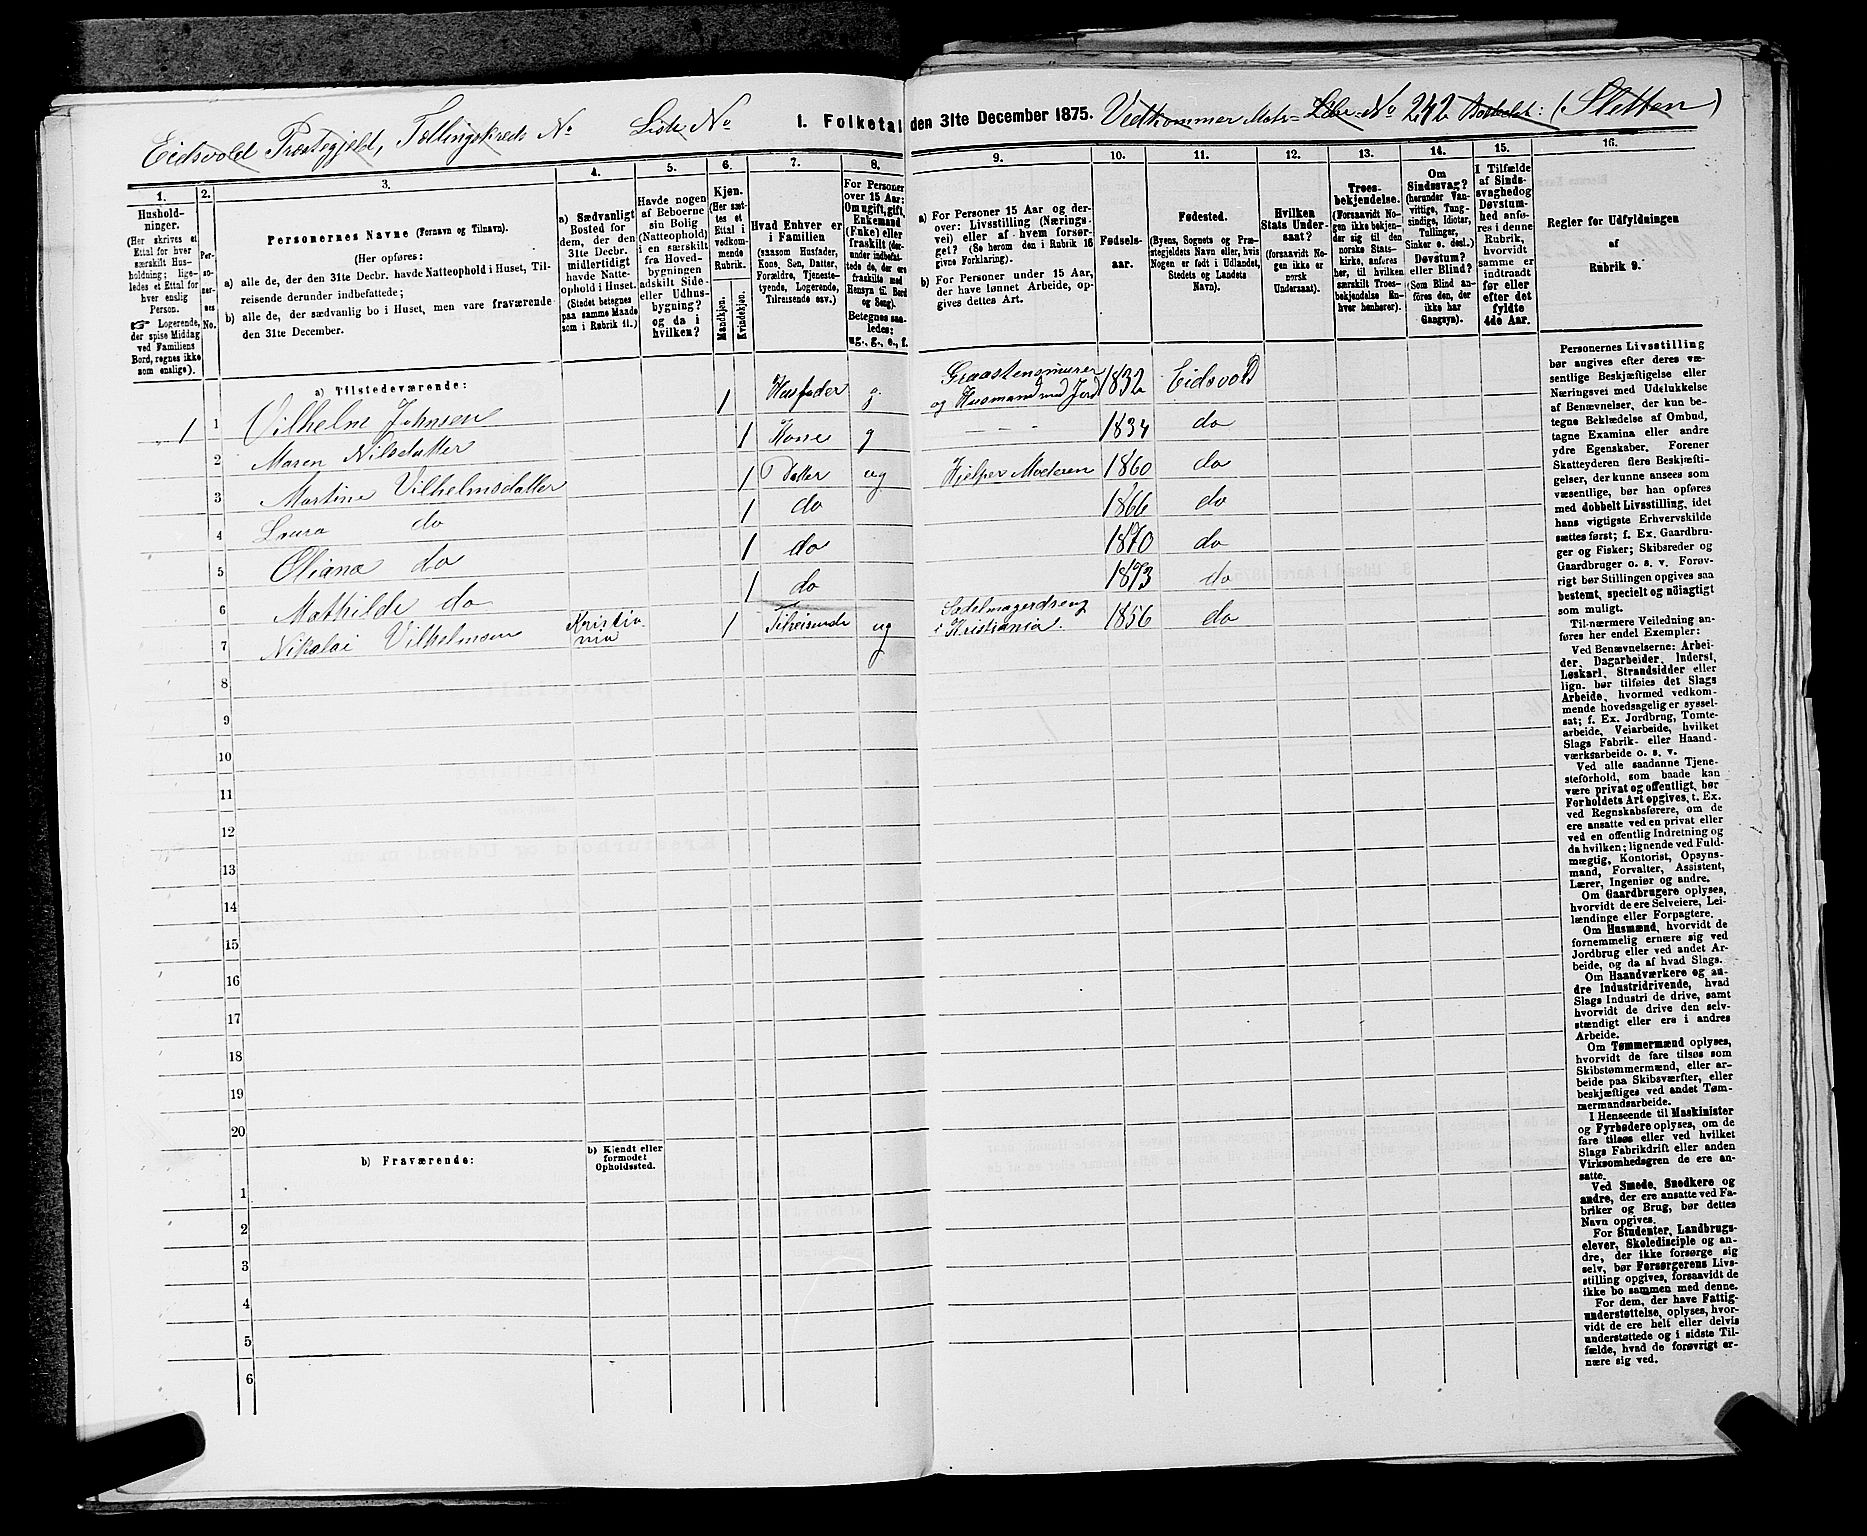 Eidsvold Præstegjeld, Tællingskreds No Liste No
I. Folketal den 31te December 1875.
Vedkommer Matr- Løbe-No 242 Bostedet: (: Sletten )
1.
Hushold-
ninger.
(Her skrives et
Ettal for hver
særskilt Hus-
holdning; lige-
ledes et Ettal for
hver enslig
Person.
☞ Logerende,
der spise Middag
ved Familiens
Bord, regnes ikke
som enslige).
2.
Per-
so-
ner-
nes
No.
3.
Personernes Navne (Fornavn og Tilnavn).
(Her opføres:
a) alle de, der den 31te Decbr. havde Natteophold i Huset, Til-
reisende derunder indbefattede;
b) alle de, der sædvanlig bo i Huset, men vare fraværende
den 31te December.
4.
a) Sædvanligt
Bosted for
dem, der den
31te Decbr.
midlertidigt
havde Natte-
ophold i Huset.
(Stedet betegnes
paa samme Maade
som i Rubrik 11.)
5.
Havde nogen
af Beboerne
sin Bolig
(Natteophold)
i en særskilt
fra Hoved-
bygningen
adskilt Side-
eller Udhus-
bygning?
og da i
hvilken?
6.
Kjøn.
(Her sæt-
tes et
Ettal i
vedkom-
mende
Rubrik.
Mandkjøn.
Kvindekjøn.
7.
Hvad Enhver er
i Familien
(saasom Husfader,
Kone, Søn, Datter,
Forældre, Tjeneste-
tyende, Logerende,
Tilreisende osv.)
8.
For Personer
over 15 Aar:
Om ugift, gift,
Enkemand
(Enke) eller
fraskilt (der-
under indbefat-
tede de, der ere
fraskilte med
Hensyn til Bord
og Seng).
Betegnes saa-
ledes:
ug., g., e., f.
9.
a) For Personer 15 Aar og der-
over: Livsstilling (Nærings-
vei) eller af hvem forsør-
get? (Se herom den i Rubrik 16
givne Forklaring).
b) For Personer under 15 Aar,
der have lønnet Arbeide, op-
gives dettes Art.
10.
Fødsels-
aar.
11.
Fødested.
(Byens, Sognets og Præ-
stegjeldets Navn eller, hvis
Nogen er født i Udlandet,
Stedets og Landets
Navn).
12.
Hvilken
Stats Under-
saat?
(forsaavidt No-
gen ikke er
norsk
Undersaat).
13.
Troes-
bekjendelse.
(Forsaavidt No-
gen ikke bekjen-
der sig til den
norske Stats-
kirke, anføres
her, til hvilken
særskilt Troes-
bekjendelse En-
hver henhører).
14.
Om
Sindssvag?
(herunder Van-
vittige, Tung-
sindige, Idioter,
Tullinger,
Sinker o. desl.)
Døvstum?
eller Blind?
(Som Blind an-
føres den, der
ikke har
Gangsyn).
15.
I Tilfælde
af Sinds-
svaghed og
Døvstum-
hed anfø-
res i denne
Rubrik,
hvorvidt
samme er
indtraadt
før eller
efter det
fyldte
4de Aar.
16.
Regler for Udfyldningen
af
Rubrik 9.
a) Tilstedeværende:
1 1 Vilhelm Johnsen 1 Husfader g. Graastensmurer og Husmand med Jord 1832 Eidsvold
2 Maren Nilsdatter 1 Kone g - - - 1834 do
3 Martine Vilhelmsdatter 1 Datter ug Hjelper Moderen 1860 do
4 Laura do 1 do 1866 do
5 Oliana do 1 do 1870 do
6 Mathilde do 1 do 1873 do
7 Nikolai Vilhelmsen Kristia nia 1 Tilreisende ug Sadelmagerdreng i Kristiania. 1856 do
8
9
10
11
12
13
14
15
16
17
18
19
20
b) Fraværende:
b) Kjendt eller
formodet
Opholdssted.
1
2
3
4
5
6
Personernes Livsstilling
bør angives efter deres væ-
sentlige Beskjæftigelse eller
Næringsvei med Udelukkelse
af Benævnelser, der kun be-
tegne Beklædelse af Ombud,
tagne Examina eller andre
ydre Egenskaber. Forener
Skatteyderen flere Beskjæfti-
gelser, der kunne ansees som
væsentlige, bør han opføres
med dobbelt Livsstilling, idet
hans vigtigste Erhvervskilde
sættes først; f. Ex. Gaardbru-
ger og Fisker; Skibsreder og
Gaardbruger o. s. v. Forøv-
rigt bør Stillingen opgives saa
bestemt, specielt og nöiagtigt
som muligt.
Til nærmere Veiledning an-
føres her endel Exempler:
Ved Benævnelserne: Arbei-
der, Dagarbeider, Inderst,
Løskarl, Strandsidder eller
lign. bør tilføies det Slags
Arbeide, hvormed vedkom-
mende hovedsagelig er syssel-
sat; f. Ex. Jordbrug, Tomte-
arbeide, Veiarbeide, hvilket
Slags Fabrik- eller Haand-
værksarbeide o. s. v.
Ved alle saadanne Tjene-
steforhold, som baade kan
være privat og offentligt, bør
Forholdets Art opgives, t. Ex.
ved Regnskabsførere, om de
ere ansatte ved en privat eller
ved en offentlig Indretning og
da hvilken; lignende ved Fuld-
mægtig, Kontorist, Opsyns-
mand, Forvalter, Assistent,
Lærer, Ingeniør og andre.
Om Gaardbrugere oplyses,
hvorvidt de ere Selveiere, Lei-
lændinge eller Forpagtere.
Om Husmænd, hvorvidt de
fornemmelig ernære sig ved
Jordbrug eller ved andet Ar-
beide, og da af hvad Slags.
Om Haandværkere og an-
dre Industridrivende, hvad
Slags Industri de drive, samt
hvorvidt de drive den selv-
stændigt eller ere i andres
Arbeide.
Om Tømmermænd oplyses,
hvorvidt de fare tilsøs som
Skibstømmermænd, eller ar-
beide paa Skibsværfter, eller
beskjæftiges ved andet Tøm-
mermandsarbeide.
I Henseende til Maskinister
og Fyrbødere oplyses, om de
fare tilsøs eller ved hvilket
Slags Fabrikdrift eller anden
Virksomhedsgren de ere an-
satte.
Ved Smede, Snedkere og
andre, der ere ansatte ved Fa-
briker og Brug, bør dettes
Navn opgives.
For Studenter, Landbrugs-
elever, Skoledisciple og an-
dre, der ikke forsørge sig
selv, bør Forsørgerens Livs-
stilling opgives, forsaavidt de
ikke bo sammen med denne.
For dem, der have Fattig-
understøttelse, oplyses, hvor-
vidt de ere helt eller delvis
understøttede og i sidste Til-
fælde, hvad de forøvrigt er-
nære sig ved.